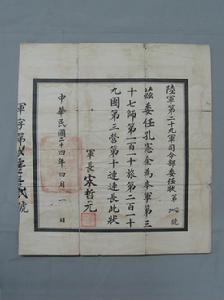 陸軍第二十九軍司令部委任狀第 號
茲委任孔憲金為本軍第三
十七師第一百一十旅第二百一十
九團第三營第十連連長此狀
軍長宋哲元
中華民國二十四年四月一日
軍字第 號